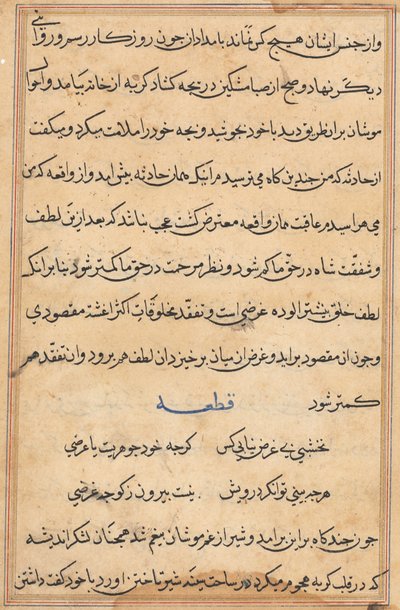 و از جنس ایشان هیچ کس نماند بامدادان چون روزکار رسم و رواننی
دیکر نهاد و صبح از صبا مشکین دریجه کشاد کربه از خانه بیامد و احوال
موشان بران طریق دید با خود بجوشید و بجه خود را ملامت میکرد و میکفت
از حادثه که من جندین کاه می ترسیدم اینک همان حادثه پیش امد و از واقعه که من
می هراسیدم عاقبت همان واقعه معترض کشت عجب نباشد که بعد ازین لطف
و شفقت شاه در حق ما کم شود و نظر مرحمت در حق ما کمتر شود بنا برانکه
لطف خلق بیشتر الوده غرضی است و تفقد مخلوقات اکثر اغشته مقصودی
و چون ان مقصود براید و غرض از میان برخیزد ان لطف هم برود و ان تفقد هم
کمتر شود قطعه
نخشبی بی غرض نیابی کس کرجه خود جوهریت یا عرضی
هر جه بینی توانکر و درویش نیست بیرون ز کوجه غرضی
جون جندکاه برین برامد و شیر از غم موشان بیغم شد همچنان لشکر اندیشه
که در قلب کربه هجوم میکرد در ساحت سینه شیر تاختن اورد با خود کفت داشتن